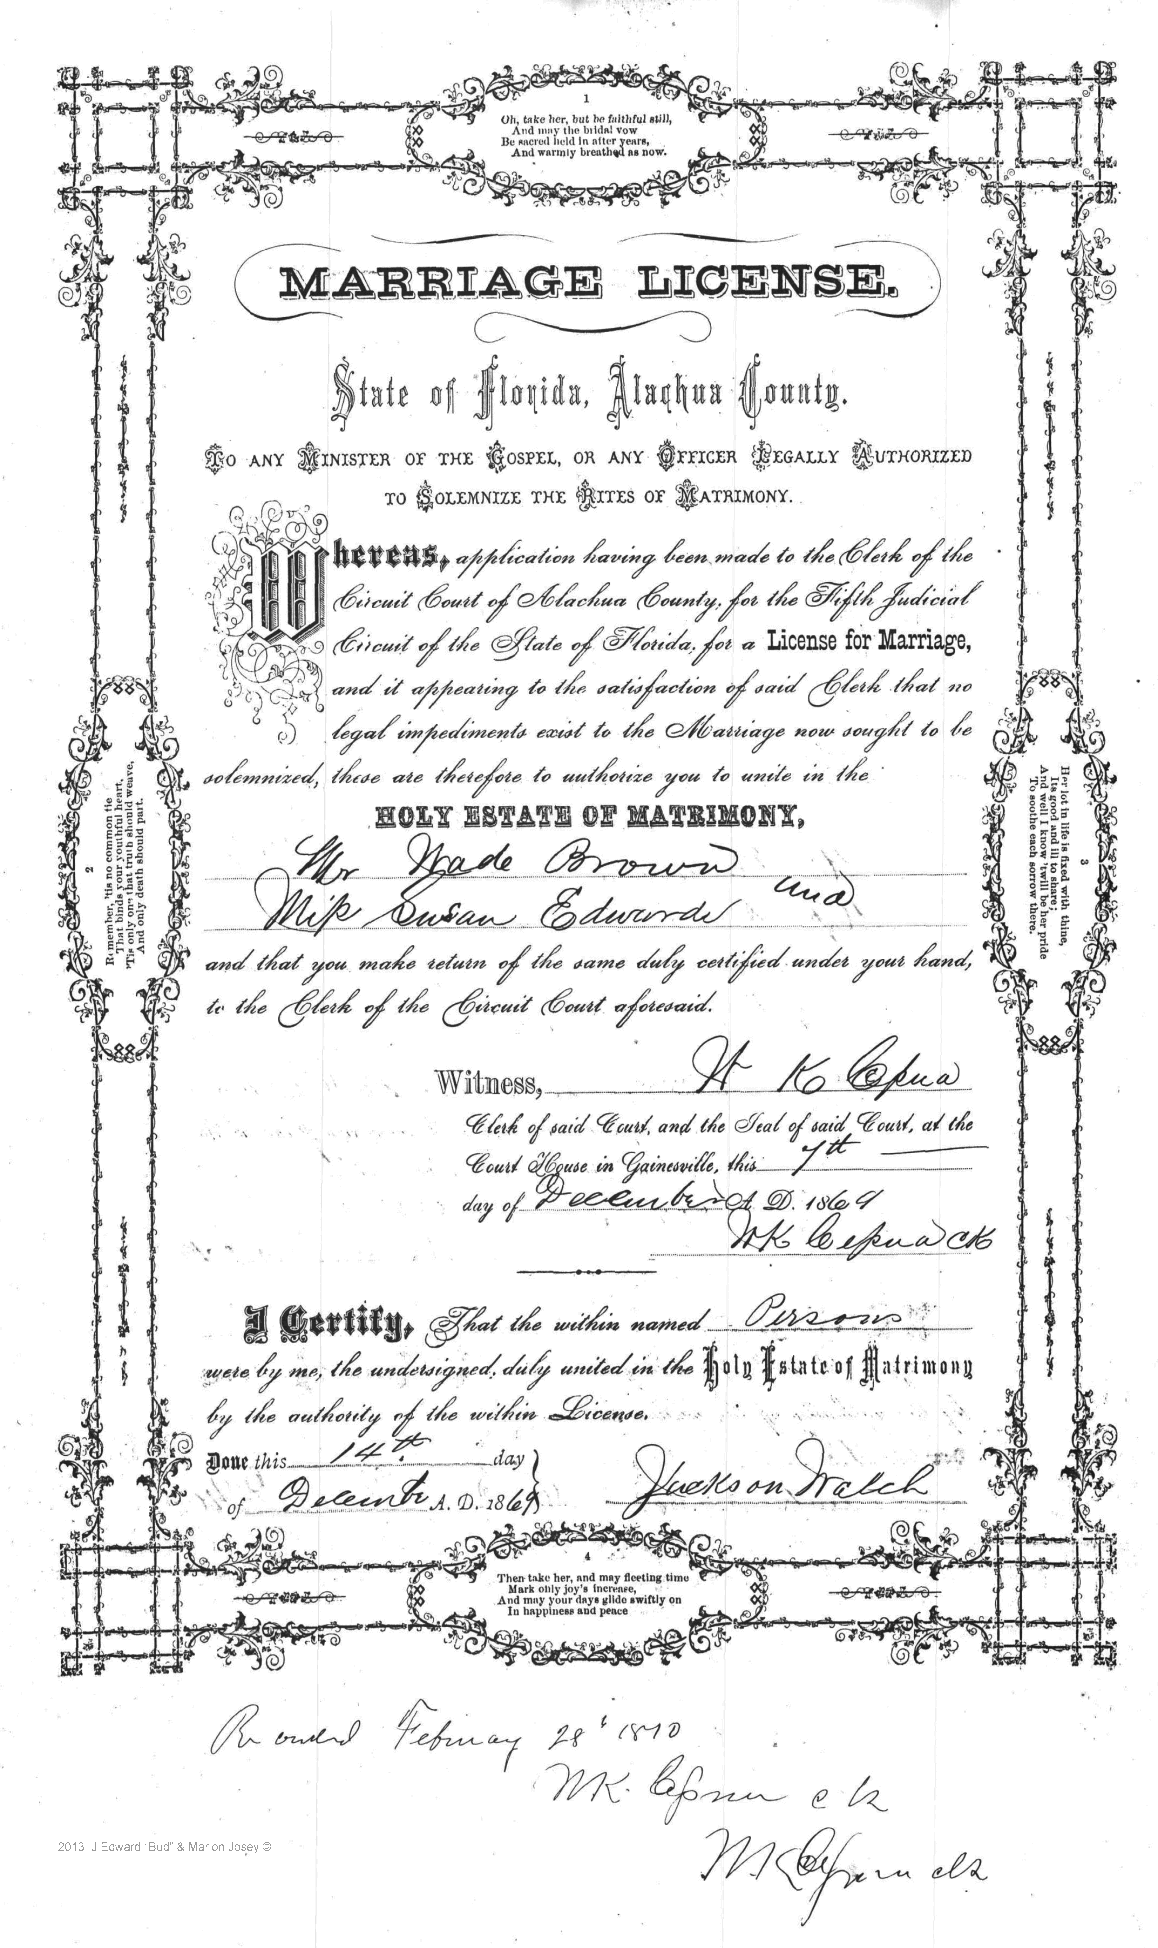 1
Oh, take her, but be faithful still,
And may the bridal vow
Be sacred held in after years,
And warmly breathed as now.
MARRIAGE LICENSE.
State of Florida, Alachua County.
TO ANY MINISTER OF THE GOSPEL, OR ANY OFFICER LEGALLY AUTHORIZED
TO SOLEMNIZE THE RITES OF MATRIMONY.
Whereas, application having been made to the Clerk of the
Circuit Court of Alachua County, for the Fifth Judicial
Circuit of the State of Florida, for a License for Marriage,
and it appearing to the satisfaction of said Clerk that no
legal impediments exist to the Marriage now sought to be
solemnized, these are therefore to authorize you to unite in the
HOLY ESTATE OF MATRIMONY,
Mr Wade Brown
and
Miss Susan Edwards
and that you make return of the same duly certified under your hand,
to the Clerk of the Circuit Court aforesaid.
2
Remember, 'tis no common tie
That binds your youthful heart,
'Tis only one that truth should weave,
And only death should part.
3
Her lot in life is fixed with thine,
Its good and ill to share;
And well I know 'twill be her pride
To soothe each sorrow there.
Witness, W K Cessna
Clerk of said Court, and the Seal of said Court, at the
Court House in Gainesville, this 7th
day of December A. D. 1869
WK Cessna Clk
I Certify, That the within named Persons
were by me, the undersigned, duly united in the Holy Estate of Matrimony
by the authority of the within License.
Done this 14th. day
of December A. D. 1869
Jackson Walch
4
Then take her, and may fleeting time
Mark only joy's increase,
And may your days glide swiftly on
In happiness and peace
Recorded February 28 1870
WK. Cessna clk
WK Cessna clk
2013 J Edward "Bud" & Marion Josey ©